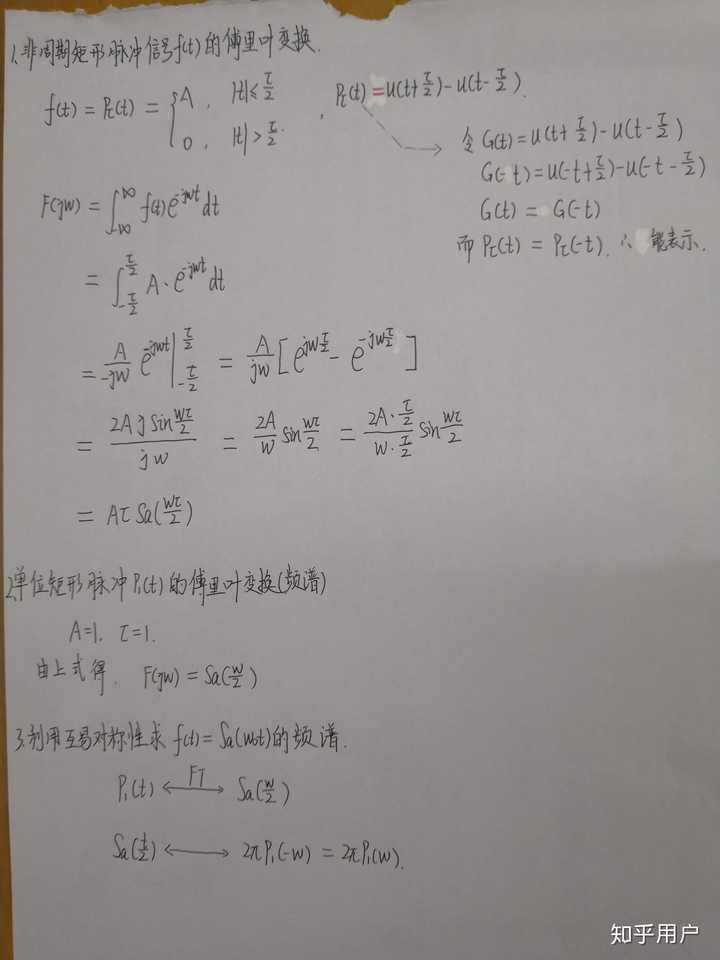 1.非周期矩形脉冲信号f(t)的傅里叶变换.
f(t) = Pτ(t) = { A, |t|≤τ/2
0, |t|>τ/2.
, Pτ(t)=u(t+τ/2)-u(t-τ/2).
令G(t)=u(t+τ/2)-u(t-τ/2)
G(-t)=u(-t+τ/2)-u(-t-τ/2)
G(t) = G(-t)
而Pτ(t) = Pτ(-t). ∴ 能表示.
F(jw) = ∫_{-∞}^{∞} f(t)e^{-jwt}dt
= ∫_{-τ/2}^{τ/2} A·e^{-jwt}dt
= A/(-jw) e^{-jwt}|_{-τ/2}^{τ/2} = A/(jw) [e^{jwτ/2} - e^{-jwτ/2}]
= (2Aj sin(wτ/2))/(jw) = 2A/w sin(wτ/2) = (2A·τ/2)/(w·τ/2) sin(wτ/2)
= Aτ Sa(wτ/2)
2.单位矩形脉冲P₁(t)的傅里叶变换(频谱)
A=1, τ=1.
由上式得. F(jw) = Sa(w/2)
3.利用互易对称性求 f(t)=Sa(w₀t)的频谱.
P₁(t) <—FT—> Sa(w/2)
Sa(t/2) <——> 2πP₁(-w) = 2πP₁(w).
知乎用户